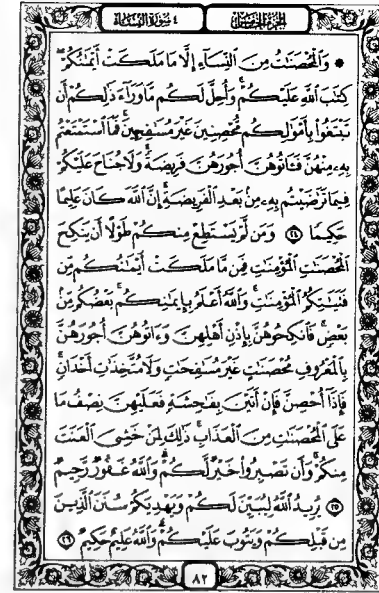 الجزء الخامس
٤ سورة النساء
وَٱلْمُحْصَنَٰتُ مِنَ ٱلنِّسَآءِ إِلَّا مَا مَلَكَتْ أَيْمَٰنُكُمْ
كِتَٰبَ ٱللَّهِ عَلَيْكُمْ وَأُحِلَّ لَكُم مَّا وَرَآءَ ذَٰلِكُمْ أَن
تَبْتَغُوا۟ بِأَمْوَٰلِكُم مُّحْصِنِينَ غَيْرَ مُسَٰفِحِينَ فَمَا ٱسْتَمْتَعْتُم
بِهِۦ مِنْهُنَّ فَـَٔاتُوهُنَّ أُجُورَهُنَّ فَرِيضَةً وَلَا جُنَاحَ عَلَيْكُمْ
فِيمَا تَرَٰضَيْتُم بِهِۦ مِنۢ بَعْدِ ٱلْفَرِيضَةِ إِنَّ ٱللَّهَ كَانَ عَلِيمًا
حَكِيمًا ٢٤ وَمَن لَّمْ يَسْتَطِعْ مِنكُمْ طَوْلًا أَن يَنكِحَ
ٱلْمُحْصَنَٰتِ ٱلْمُؤْمِنَٰتِ فَمِن مَّا مَلَكَتْ أَيْمَٰنُكُم مِّن
فَتَيَٰتِكُمُ ٱلْمُؤْمِنَٰتِ وَٱللَّهُ أَعْلَمُ بِإِيمَٰنِكُم بَعْضُكُم مِّنۢ
بَعْضٍ فَٱنكِحُوهُنَّ بِإِذْنِ أَهْلِهِنَّ وَءَاتُوهُنَّ أُجُورَهُنَّ
بِٱلْمَعْرُوفِ مُحْصَنَٰتٍ غَيْرَ مُسَٰفِحَٰتٍ وَلَا مُتَّخِذَٰتِ أَخْدَانٍ
فَإِذَآ أُحْصِنَّ فَإِنْ أَتَيْنَ بِفَٰحِشَةٍ فَعَلَيْهِنَّ نِصْفُ مَا
عَلَى ٱلْمُحْصَنَٰتِ مِنَ ٱلْعَذَابِ ذَٰلِكَ لِمَنْ خَشِىَ ٱلْعَنَتَ
مِنكُمْ وَأَن تَصْبِرُوا۟ خَيْرٌ لَّكُمْ وَٱللَّهُ غَفُورٌ رَّحِيمٌ
٢٥ يُرِيدُ ٱللَّهُ لِيُبَيِّنَ لَكُمْ وَيَهْدِيَكُمْ سُنَنَ ٱلَّذِينَ
مِن قَبْلِكُمْ وَيَتُوبَ عَلَيْكُمْ وَٱللَّهُ عَلِيمٌ حَكِيمٌ ٢٦
٨٢